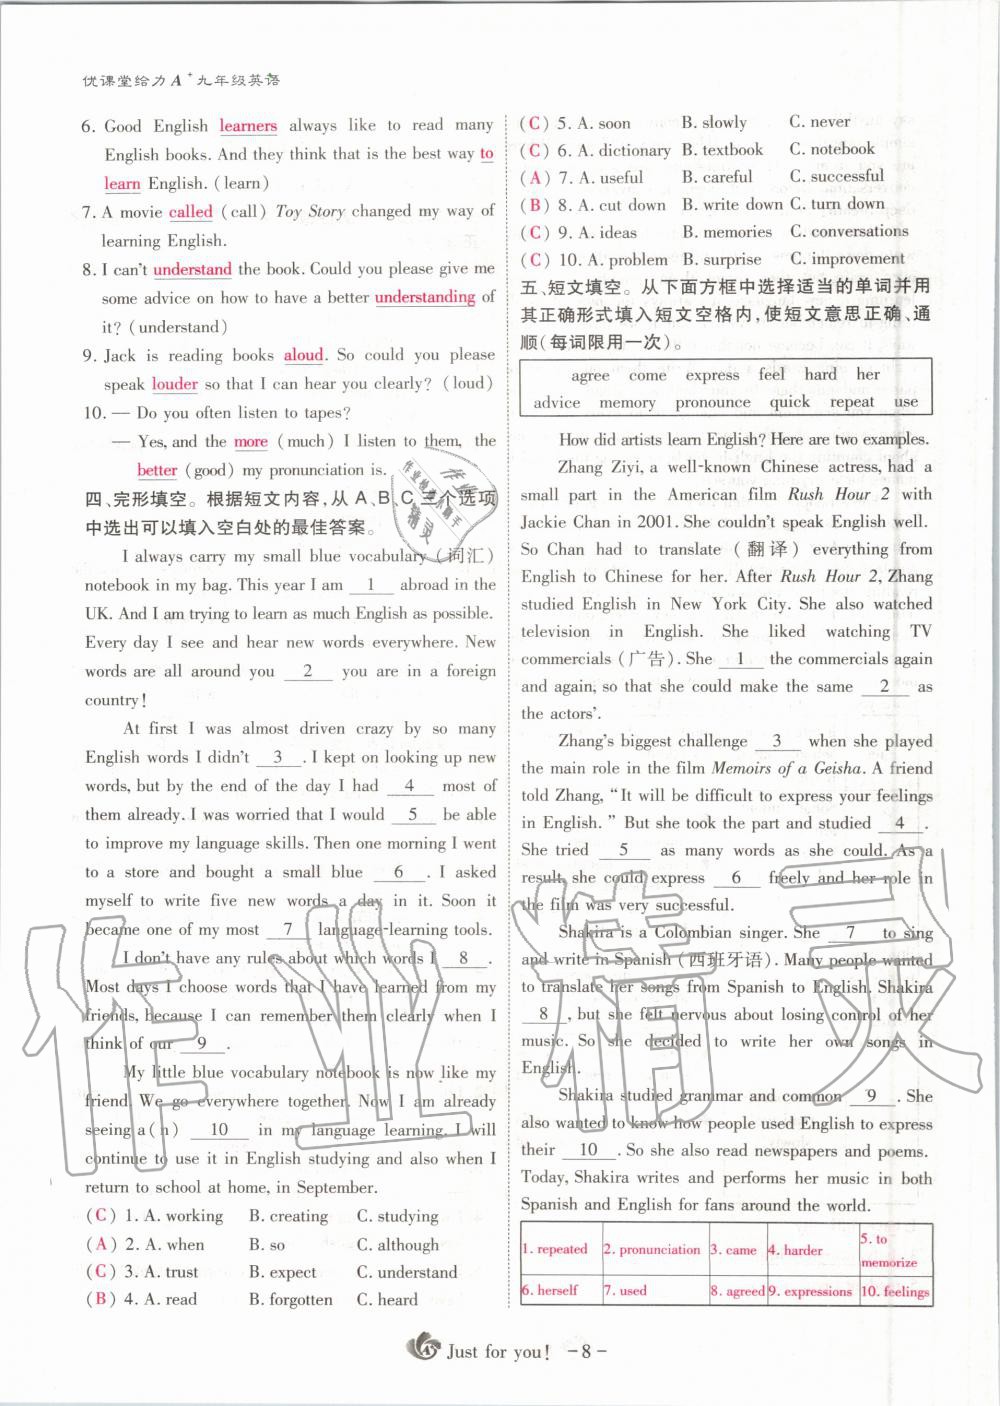 优课堂给力 A⁺ 九年级英语
6. Good English learners always like to read many
English books. And they think that is the best way to
learn English. (learn)
7. A movie called (call) Toy Story changed my way of
learning English.
8. I can't understand the book. Could you please give me
some advice on how to have a better understanding of
it? (understand)
9. Jack is reading books aloud. So could you please
speak louder so that I can hear you clearly? (loud)
10. — Do you often listen to tapes?
— Yes, and the more (much) I listen to them, the
better (good) my pronunciation is.
四、完形填空。根据短文内容,从 A、B、C 三个选项
中选出可以填入空白处的最佳答案。
I always carry my small blue vocabulary (词汇)
notebook in my bag. This year I am 1 abroad in the
UK. And I am trying to learn as much English as possible.
Every day I see and hear new words everywhere. New
words are all around you 2 you are in a foreign
country!
At first I was almost driven crazy by so many
English words I didn't 3 . I kept on looking up new
words, but by the end of the day I had 4 most of
them already. I was worried that I would 5 be able
to improve my language skills. Then one morning I went
to a store and bought a small blue 6 . I asked
myself to write five new words a day in it. Soon it
became one of my most 7 language-learning tools.
I don't have any rules about which words I 8 .
Most days I choose words that I have learned from my
friends, because I can remember them clearly when I
think of our 9 .
My little blue vocabulary notebook is now like my
friend. We go everywhere together. Now I am already
seeing a(n) 10 in my language learning. I will
continue to use it in English studying and also when I
return to school at home, in September.
(C) 1. A. working B. creating C. studying
(A) 2. A. when B. so C. although
(C) 3. A. trust B. expect C. understand
(B) 4. A. read B. forgotten C. heard
(C) 5. A. soon B. slowly C. never
(C) 6. A. dictionary B. textbook C. notebook
(A) 7. A. useful B. careful C. successful
(B) 8. A. cut down B. write down C. turn down
(C) 9. A. ideas B. memories C. conversations
(C) 10. A. problem B. surprise C. improvement
五、短文填空。从下面方框中选择适当的单词并用
其正确形式填入短文空格内,使短文意思正确、通
顺(每词限用一次)。
agree come express feel hard her
advice memory pronounce quick repeat use
How did artists learn English? Here are two examples.
Zhang Ziyi, a well-known Chinese actress, had a
small part in the American film Rush Hour 2 with
Jackie Chan in 2001. She couldn't speak English well.
So Chan had to translate (翻译) everything from
English to Chinese for her. After Rush Hour 2, Zhang
studied English in New York City. She also watched
television in English. She liked watching TV
commercials (广告). She 1 the commercials again
and again, so that she could make the same 2 as
the actors'.
Zhang's biggest challenge 3 when she played
the main role in the film Memoirs of a Geisha. A friend
told Zhang, "It will be difficult to express your feelings
in English." But she took the part and studied 4 .
She tried 5 as many words as she could. As a
result, she could express 6 freely and her role in
the film was very successful.
Shakira is a Colombian singer. She 7 to sing
and write in Spanish (西班牙语). Many people wanted
to translate her songs from Spanish to English. Shakira
8 , but she felt nervous about losing control of her
music. So she decided to write her own songs in
English.
Shakira studied grammar and common 9 . She
also wanted to know how people used English to express
their 10 . So she also read newspapers and poems.
Today, Shakira writes and performs her music in both
Spanish and English for fans around the world.
1. repeated 2. pronunciation 3. came 4. harder 5. to memorize
6. herself 7. used 8. agreed 9. expressions 10. feelings
Just for you! -8-
作业精灵